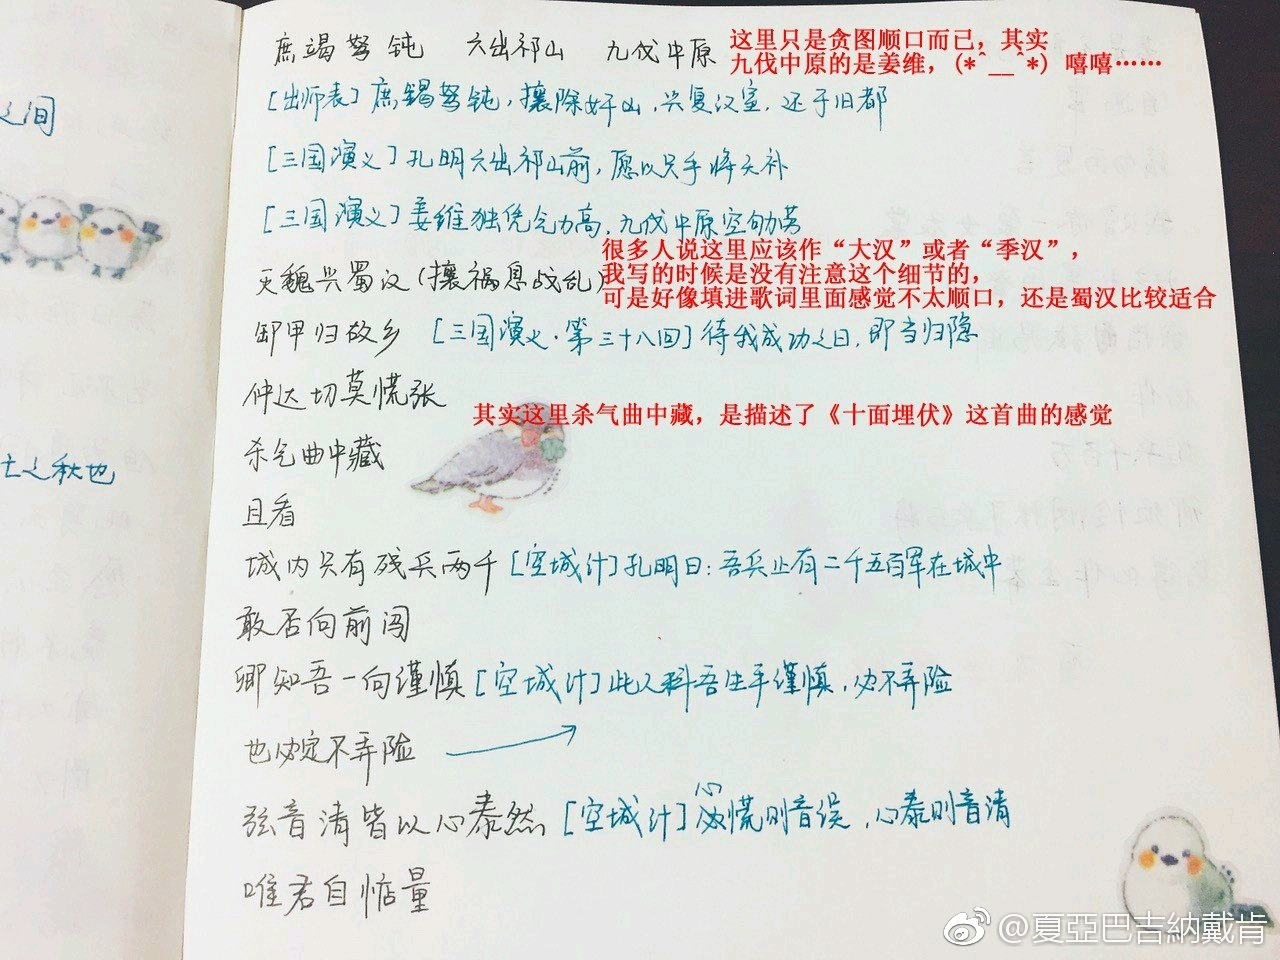 之间
亡之秋也
庶竭驽钝 六出祁山 九伐中原
这里只是贪图顺口而已，其实
九伐中原的是姜维，(*^__^*) 嘻嘻……
[出师表] 庶竭驽钝，攘除奸凶，兴复汉室，还于旧都
[三国演义] 孔明六出祁山前，愿以只手将天补
[三国演义] 姜维独凭气力高，九伐中原空劬劳
很多人说这里应该作“大汉”或者“季汉”，
我写的时候是没有注意这个细节的，
可是好像填进歌词里面感觉不太顺口，还是蜀汉比较适合
灭魏兴蜀汉 (攘祸息战乱)
卸甲归故乡 [三国演义·第三十八回] 待我成功之日，即当归隐
仲达切莫慌张
其实这里杀气曲中藏，是描述了《十面埋伏》这首曲的感觉
杀气曲中藏
且看
城内只有残兵两千 [空城计] 孔明曰：吾兵止有二千五百军在城中
敢否向前闯
卿知吾一向谨慎 [空城计] 此人料吾生平谨慎，必不弄险
也必定不弄险
弦音清皆以心泰然 [空城计] 心慌则音误，心泰则音清
唯君自惦量
@夏亞巴吉納戴肯